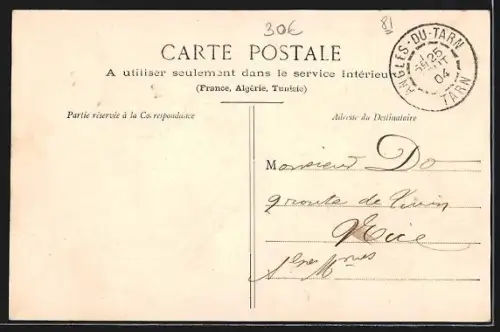 30€
81
CARTE POSTALE
A utiliser seulement dans le service intérieur
(France, Algérie, Tunisie)
ANGLÈS-DU-TARN
25
AOUT
04
TARN
Partie réservée à la Correspondance
Adresse du Destinataire
Monsieur Do
9 route de Turin
Nice
Alpes Mmes